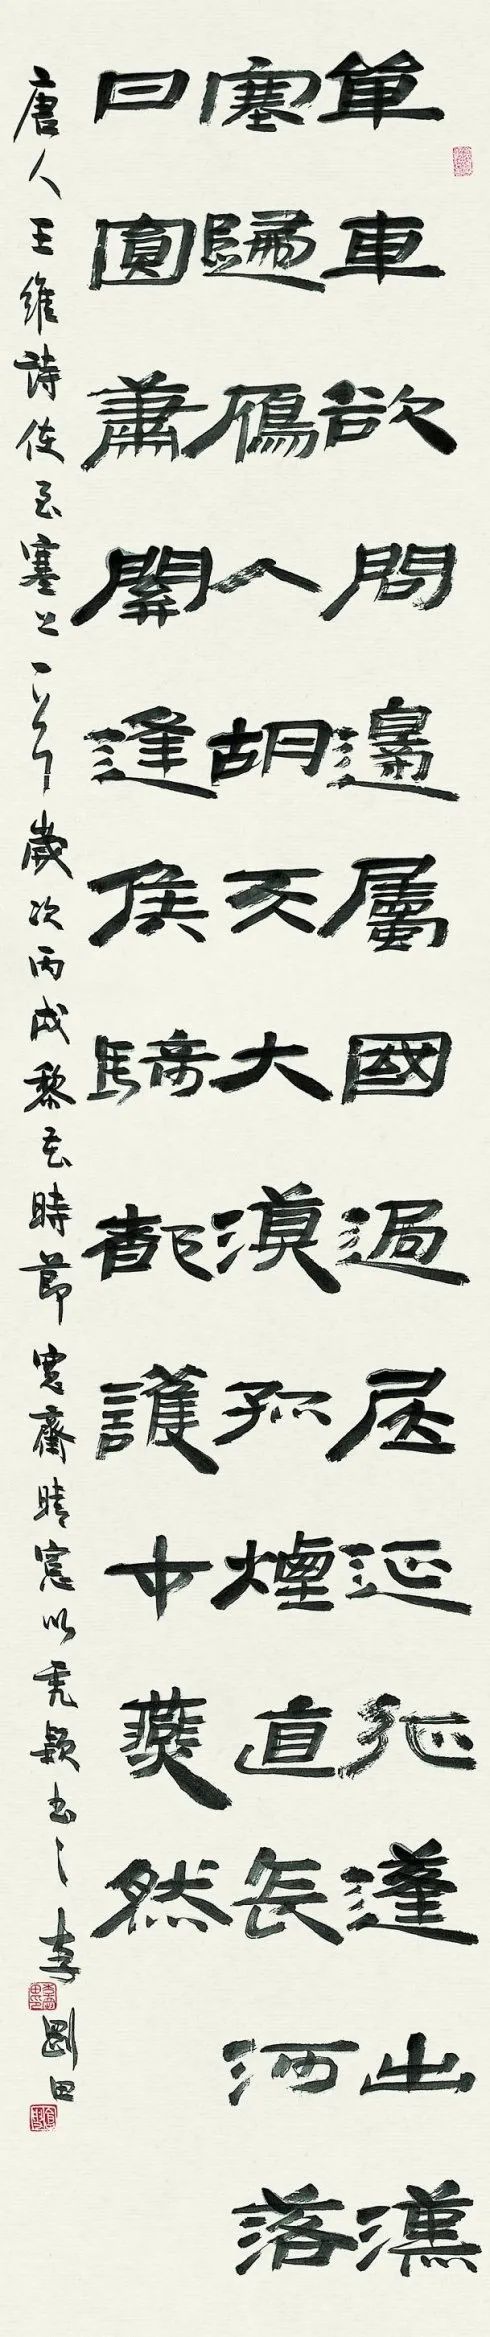 單車欲問邊屬國過居延征蓬出漢
塞歸雁人胡天大漠孤煙直長河落
日圓蕭關逢候騎都護十燕然
唐人王維詩使至塞上一首歲次丙戌黎花時節寬齋晴窗以禿穎書之李剛田